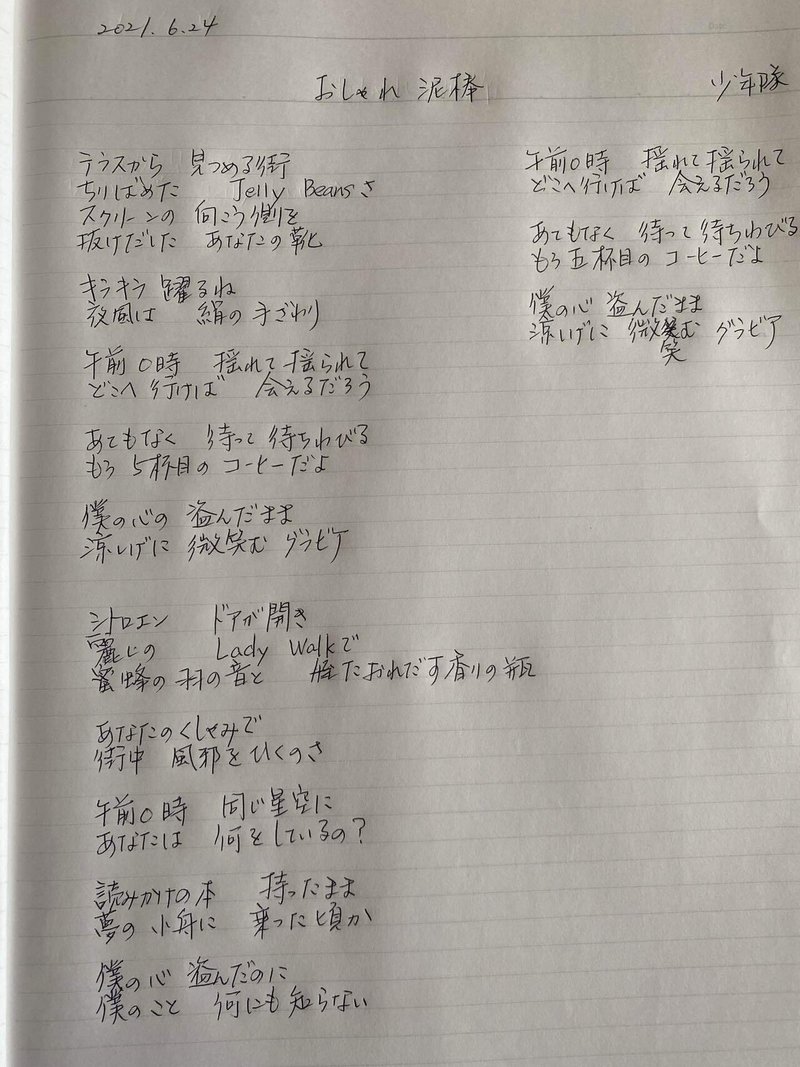 2021.6.24
おしゃれ 泥棒
少年隊
テラスから 見つめる街
ちりばめた Jelly Beansさ
スクリーンの 向こう側を
抜けだした あなたの靴
キラキラ 躍るね
夜風は 絹の手ざわり
午前0時 揺れて揺られて
どこへ行けば 会えるだろう
あてもなく 待って待ちわびる
もう5杯目のコーヒーだよ
僕の心の 盗んだまま
涼しげに 微笑む グラビア
シトロエン ドアが開き
麗しの Lady Walkで
蜜蜂の羽の音と たおれだす香りの瓶
あなたのくしゃみで
街中 風邪をひくのさ
午前0時 同じ星空に
あなたは 何をしているの?
読みかけの本 持ったまま
夢の小舟に 乗った頃か
僕の心 盗んだのに
僕のこと 何にも知らない
午前0時 揺れて揺られて
どこへ行けば 会えるだろう
あてもなく 待って待ちわびる
もう五杯目のコーヒーだよ
僕の心 盗んだまま
涼しげに 微笑む グラビア
笑